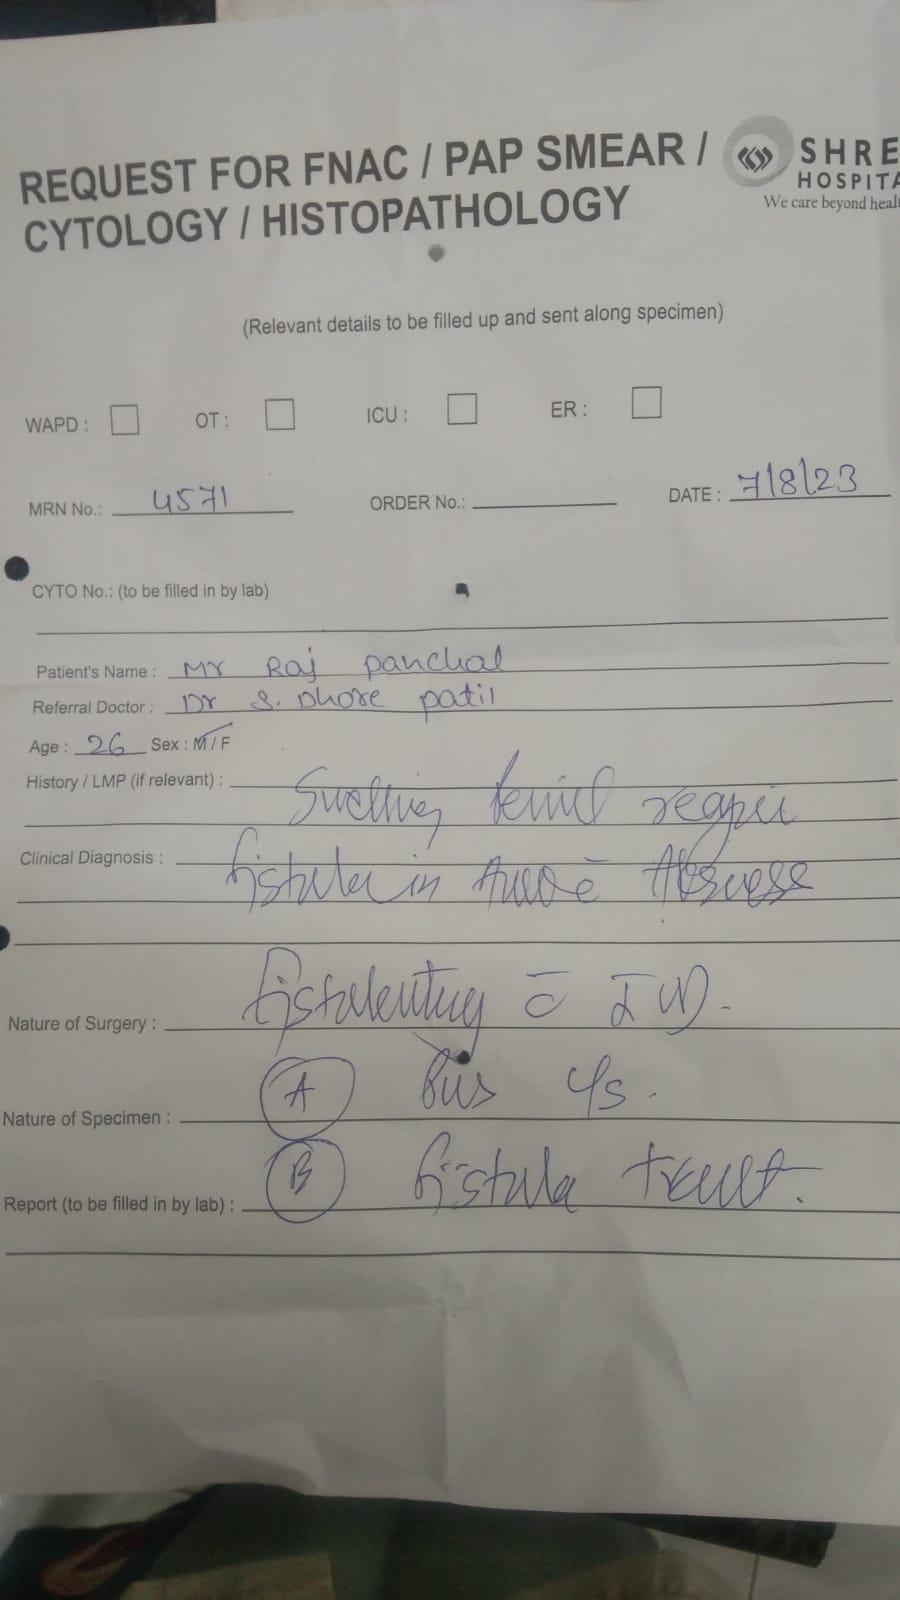 REQUEST FOR FNAC / PAP SMEAR /
CYTOLOGY / HISTOPATHOLOGY
SHRE
HOSPITA
We care beyond healt
(Relevant details to be filled up and sent along specimen)
WAPD : OT : ICU : ER :
MRN No.: 4571 ORDER No.: DATE : 7/8/23
CYTO No.: (to be filled in by lab)
Patient's Name : Mr Raj panchal
Referral Doctor : Dr S. Dhore patil
Age : 26 Sex : M / F
History / LMP (if relevant) : Swelling
Clinical Diagnosis : fistula in Abscess
Nature of Surgery :
Nature of Specimen : A Pus c/s.
Report (to be filled in by lab) : B fistula